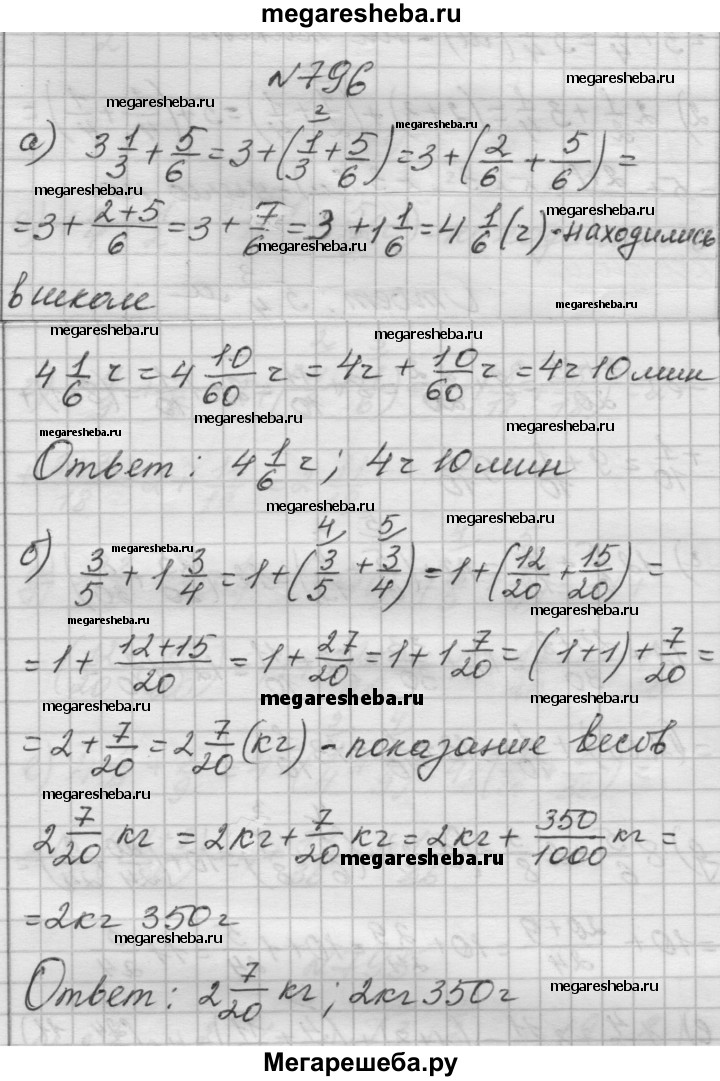 megaresheba.ru
№796
megaresheba.ru
megaresheba.ru
megaresheba.ru
а) 3 1/3 + 5/6 = 3 + (1/3 ² + 5/6) = 3 + (2/6 + 5/6) =
megaresheba.ru
megaresheba.ru
= 3 + (2+5)/6 = 3 + 7/6 = 3 + 1 1/6 = 4 1/6 (ч) - находились
megaresheba.ru
в школе
megaresheba.ru
megaresheba.ru
megaresheba.ru
4 1/6 ч = 4 10/60 ч = 4ч + 10/60 ч = 4ч 10 мин
megaresheba.ru
megaresheba.ru
megaresheba.ru
Ответ: 4 1/6 ч; 4ч 10 мин
megaresheba.ru
megaresheba.ru
б) 3/5 + 1 3/4 = 1 + (3/5 ⁴ + 3/4 ⁵) = 1 + (12/20 + 15/20) =
megaresheba.ru
megaresheba.ru
= 1 + (12+15)/20 = 1 + 27/20 = 1 + 1 7/20 = (1+1) + 7/20 =
megaresheba.ru
megaresheba.ru
megaresheba.ru
= 2 + 7/20 = 2 7/20 (кг) - показание весов
megaresheba.ru
2 7/20 кг = 2кг + 7/20 кг = 2кг + 350/1000 кг =
megaresheba.ru
= 2кг 350г
megaresheba.ru
Ответ: 2 7/20 кг; 2кг 350г
megaresheba.ru
Мегарешеба.ру